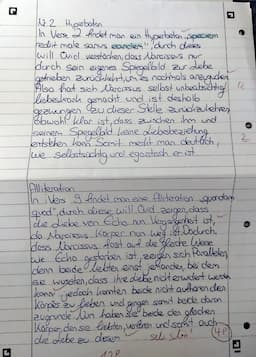 Nr. 2 Hyperbaton
In Vers 2 findet man ein Hyperbaton "speciem
redit male sanus eandem", durch dieses
will Ovid verstehen, dass Narcissus nur
durch sein eigenes Spiegelbild zur Liebe
getrieben zurückkehrt, um es nochmals anzugucken.
Also hat sich Narcissus selbst unbeabsichtigt
liebeskrank gemacht und ist deshalb
gezwungen zu dieser Stelle zurückzukehren,
obwohl klar ist, dass zwischen ihm und
seinem Spiegelbild keine Liebesbeziehung
entstehen kann. Somit merkt man deutlich,
wie selbstsüchtig und egoistisch er ist.
Alliteration
In Vers 9 findet man eine Alliteration "quondam
quod", durch diese will Ovid zeigen, dass
die Liebe von Echo nun Vergangenheit ist,
da Narcissus Körper nun weg ist. Dadurch
dass Narcissus fast auf die gleiche Weise
wie Echo gestorben ist, zeigen sich Parallelen,
denn beide liebten einst jemanden, bei dem
sie wussten, dass ihre Liebe nicht erwidert werden
kann, jedoch konnten beide nicht aufhören den
Körper zu lieben und gingen somit beide daran
zugrunde. Nun haben sie beide den gleichen
Körper, den sie liebten, verloren und somit auch
die Liebe zu diesem.